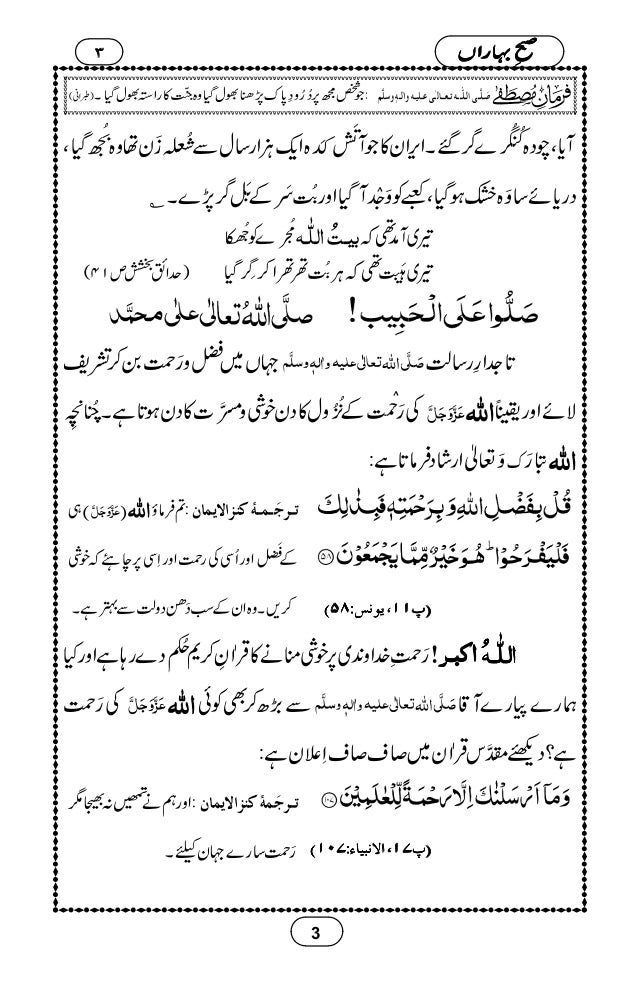 صبحِ بہاراں
۳
فرمانِ مصطفےٰ صلَّی اللہ تعالٰی علیہ واٰلہٖ وسلَّم : جو شخص مجھ پر دُرُودِ پاک پڑھنا بھول گیا وہ جنّت کا راستہ بھول گیا۔ (طبرانی)
آیا، چودہ کُنگُرے گر گئے۔ ایران کا جو آتَش کدہ ایک ہزار سال سے شُعلہ زَن تھا وہ بُجھ گیا،
دریائے ساوَہ خشک ہوگیا، کعبے کو وَجْد آگیا اور بُت سَر کے بَل گر پڑے۔
تیری آمد تھی کہ بیتُ اللّٰہ مُجرے کو جُھکا
تیری ہَیبت تھی کہ ہر بُت تھر تھرا کر گِر گیا (حدائقِ بخشش ص ۴۱)
صَلُّوا عَلَی الْحَبِیب! صلَّی اللہُ تعالٰی علٰی محمَّد
تاجدارِ رسالت صَلَّی اللہ تعالٰی علیہ واٰلہٖ وسلَّم جہاں میں فضل و رَحمت بن کر تشریف
لائے اور یقیناً اللہ عَزَّوَجَلَّ کی رَحْمت کے نُزُول کا دن خوشی و مسرَّت کا دن ہوتا ہے۔ چُنانچِہ
اللہ تبارَک وَ تعالٰی ارشاد فرماتا ہے:
قُلْ بِفَضْلِ اللّٰهِ وَ بِرَحْمَتِهٖ فَبِذٰلِكَ ترجَمۂ کنزالایمان :تم فرماؤ اللہ (عَزَّوَجَلَّ) ہی
فَلْیَفْرَحُوْا ؕ هُوَ خَیْرٌ مِّمَّا یَجْمَعُوْنَ ﴿۵۸﴾ کے فَضل اور اُسی کی رحمت اور اِسی پر چاہئے کہ خوشی
(پ۱۱، یونس:۵۸) کریں۔ وہ ان کے سب دَھن دولت سے بہتر ہے۔
اللّٰہُ اکبر! رَحمتِ خداوندی پر خوشی منانے کا قراٰنِ کریم حُکم دے رہا ہے اور کیا
ہمارے پیارے آقا صَلَّی اللہ تعالٰی علیہ واٰلہٖ وسلَّم سے بڑھ کر بھی کوئی اللہ عَزَّوَجَلَّ کی رَحمت
ہے؟ دیکھئے مقدَّس قراٰن میں صاف صاف اِعلان ہے:
وَ مَاۤ اَرْسَلْنٰكَ اِلَّا رَحْمَةً لِّلْعٰلَمِیْنَ ﴿۱۰۷﴾ ترجَمۂ کنزالایمان :اور ہم نے تمھیں نہ بھیجا مگر
(پ۱۷، الانبیاء:۱۰۷) رَحمت سارے جہان کیلئے۔
3